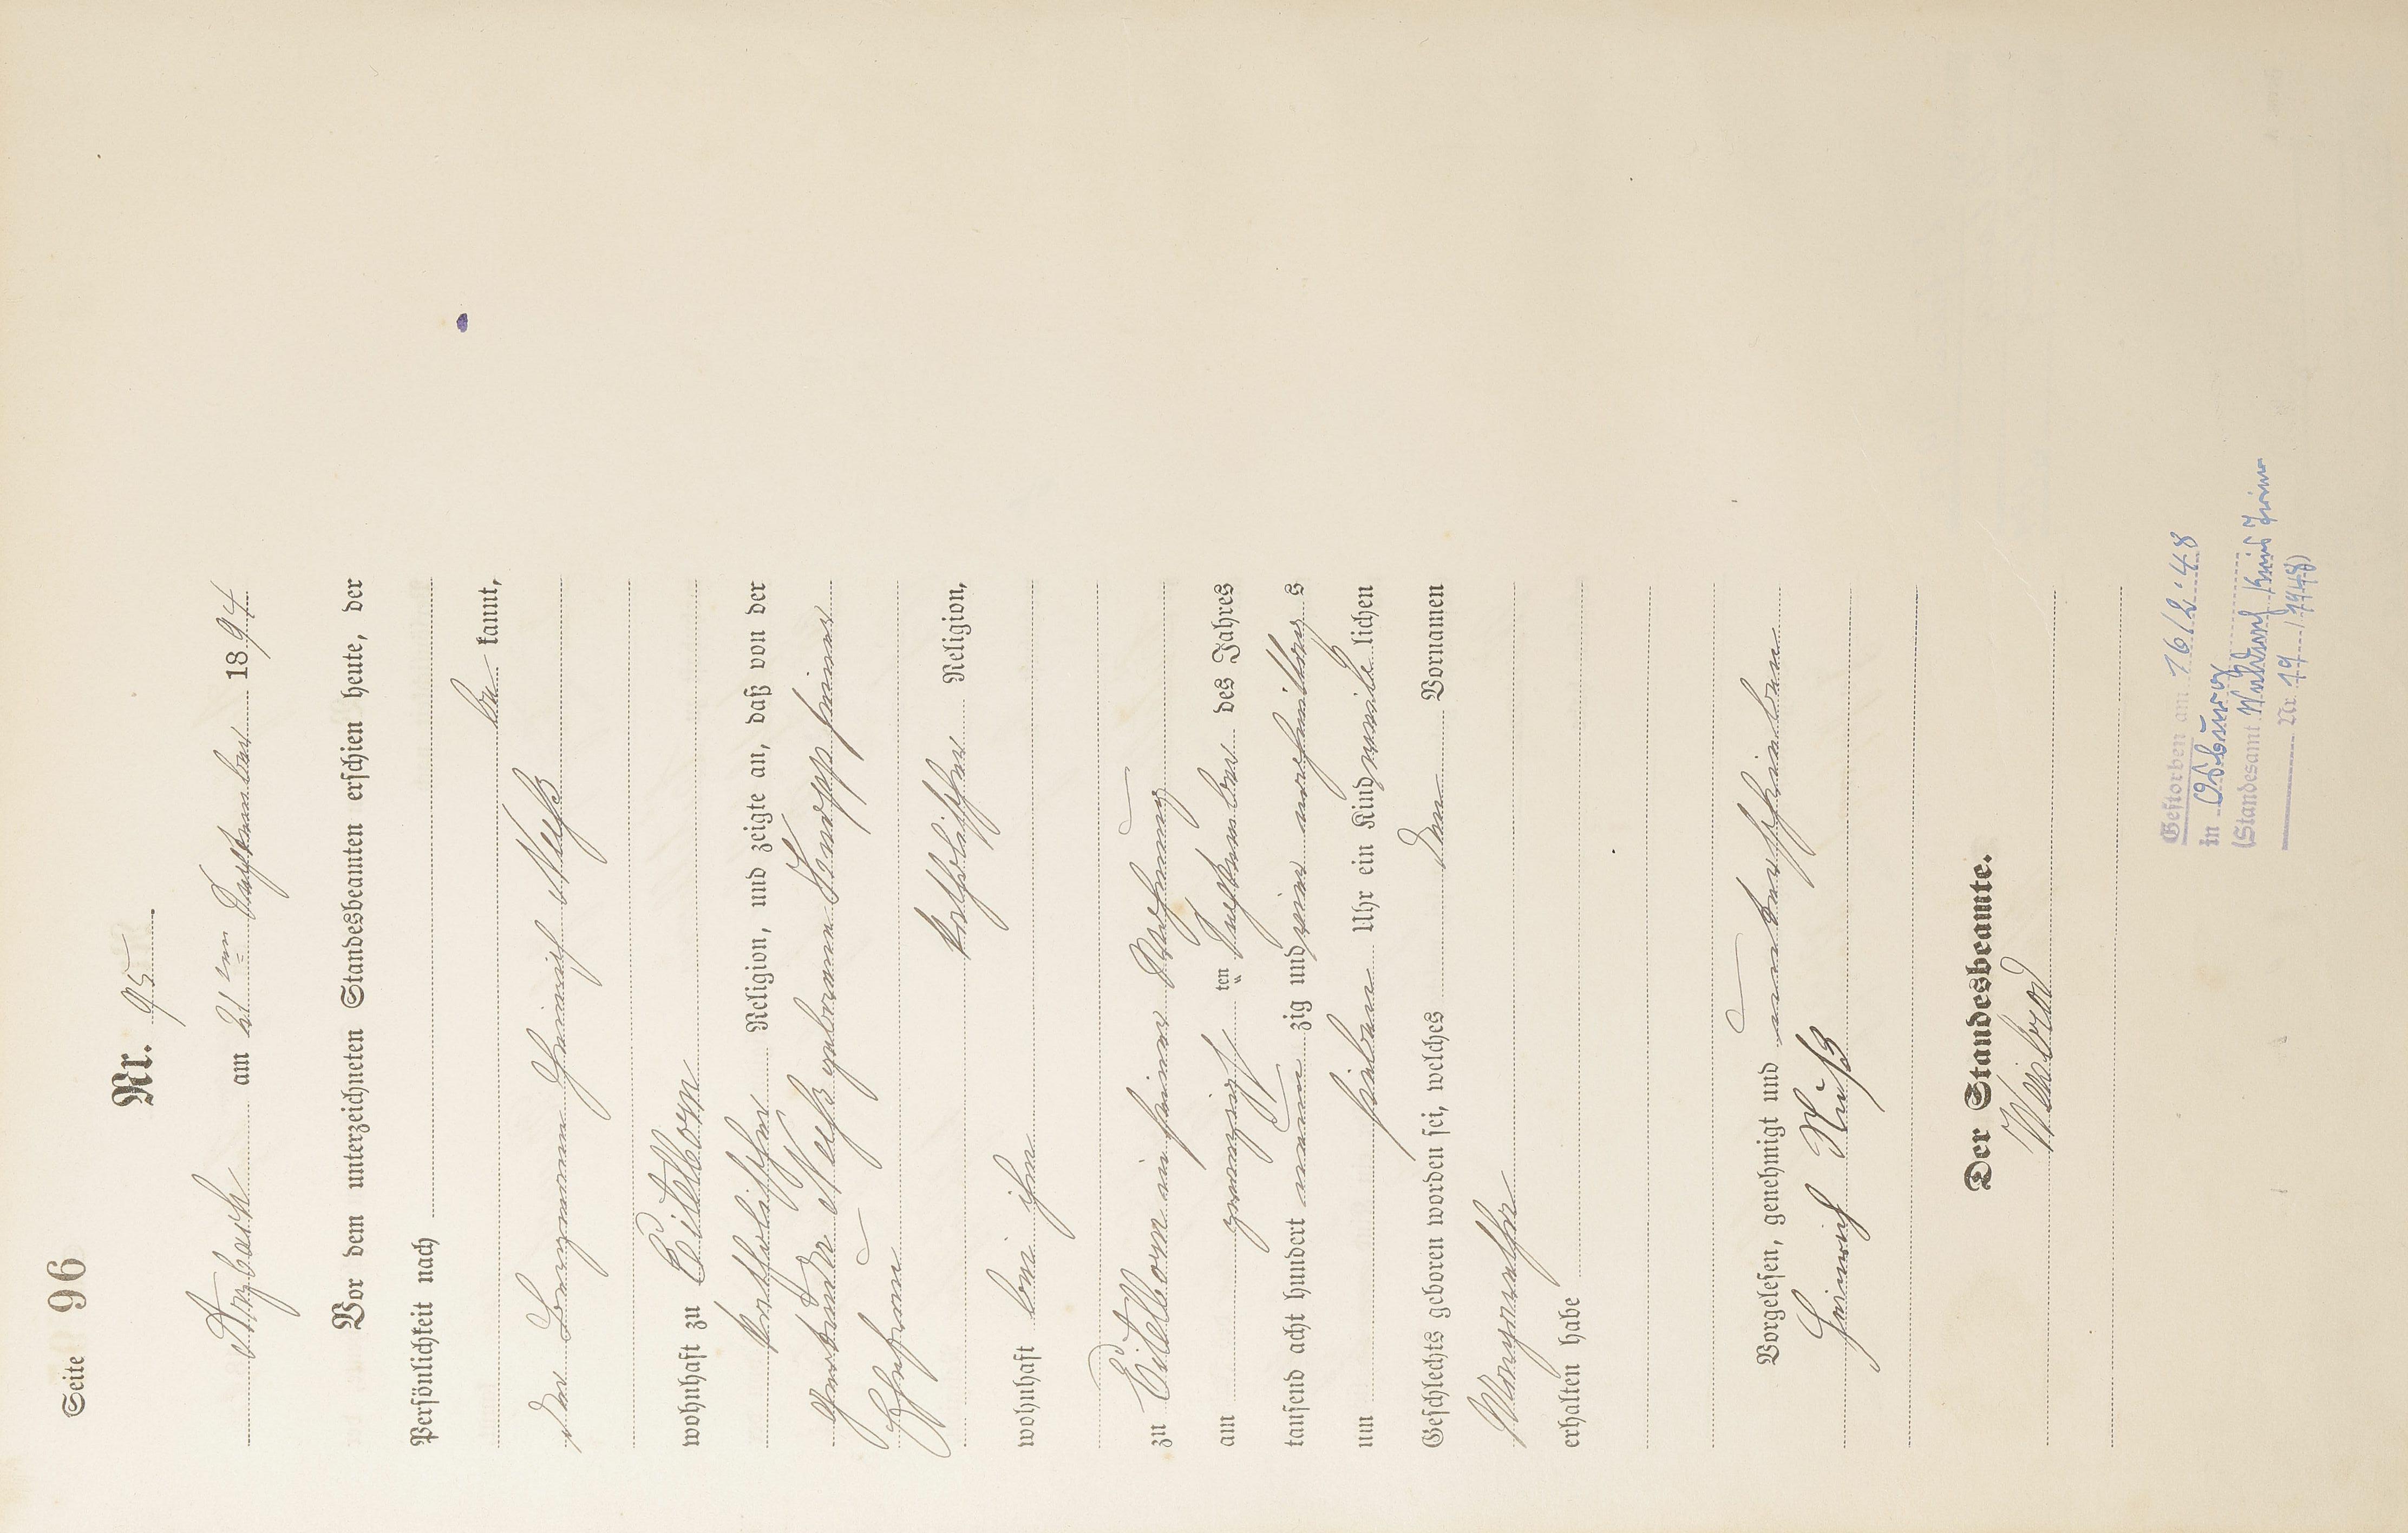 Seite 96
Nr. 95.
Arzbach am 21ten September 1894
Vor dem unterzeichneten Standesbeamten erschien heute, der
Persönlichkeit nach
be kannt,
der Bergmann Heinrich Neuß
wohnhaft zu Eitelborn
katholischer Religion, und zeigte an, daß von der
Gertrude Neuß geborene Knopp seiner
Ehefrau
katholischer Religion,
wohnhaft bei ihm
zu Eitelborn in seiner Wohnung
am zwanzigsten September des Jahres
tausend acht hundert neun zig und vier nachmittags
um sieben Uhr ein Kind weiblichen
Geschlechts geboren worden sei, welches den Vornamen
Margarethe
erhalten habe
Vorgelesen, genehmigt und unterschrieben
Heinrich Neuß
Der Standesbeamte.
Gestorben am 16/2.48
in
(Standesamt
Nr. 19 / 1948)